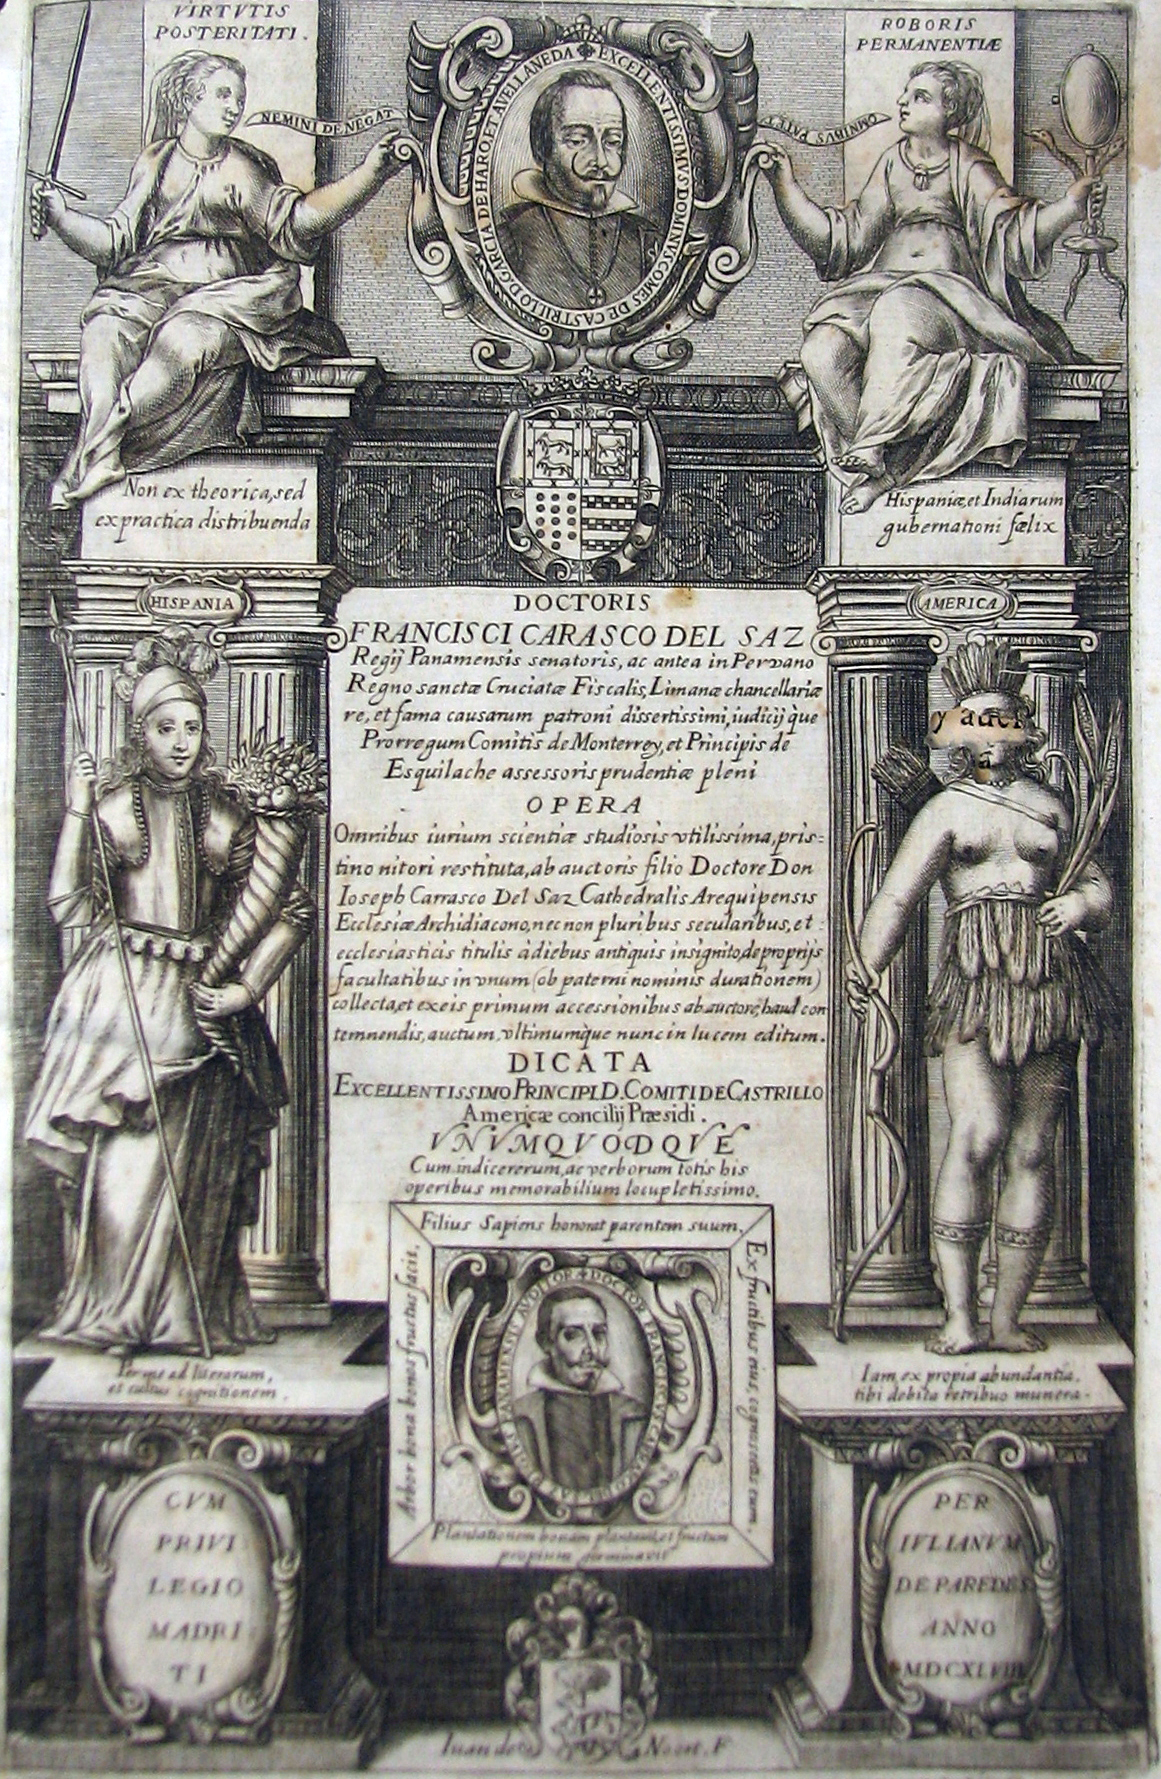 VIRTVTIS
POSTERITATI.
ROBORIS
PERMANENTIÆ
NEMINI DENEGAT
OMNIBVS PATET
D. GARCIA DE HARO ET AVELLANEDA ✠ EXCELLENTISSIMVS DOMINVS COMES DE CASTRILLO
Non ex theorica, sed
ex practica distribuenda
Hispaniæ, et Indiarum
gubernationi fælix
HISPANIA
AMERICA
DOCTORIS
FRANCISCI CARASCO DEL SAZ
Regij Panamensis senatoris, ac antea in Peruano
Regno sanctæ Cruciatæ Fiscalis, Limanæ chancellariæ
re, et fama causarum patroni dissertissimi, iudicij que
Prorregum Comitis de Monterrey, et Principis de
Esquilache assessoris prudentiæ pleni
OPERA
Omnibus iurium scientiæ studiosis vtilissima, pris=
tino nitori restituta, ab auctoris filio Doctore Don
Ioseph Carrasco Del Saz Cathedralis Arequipensis
Ecclesiæ Archidiacono, nec non pluribus secularibus, et
ecclesiasticis titulis à diebus antiquis insignito, de proprijs
facultatibus in vnum (ob paterni nominis durationem)
collecta, et ex eis primum accessionibus ab auctore, haud con
temnendis, auctum, vltimumque nunc in lucem editum.
DICATA
EXCELLENTISSIMO PRINCIPI D. COMITI DE CASTRILLO
Americæ concilij Præsidi.
VNVMQVODQVE
Cum indice rerum, ac verborum totis his
operibus memorabilium locupletissimo.
y
a
Filius Sapiens honorat parentem suum.
Arbor bona bonos fructus facit.
Ex fructibus eius cognoscetis eum.
AVDITOR ✠ DOCTOR FRANCISCVS CARASCO DEL SAZ
Plantationem bonam plantauit, et fructum
propium germinavit
Per me ad literarum,
et cultus cognitionem.
Iam ex propia abundantia,
tibi debita retribuo munera.
CVM
PRIVI
LEGIO
MADRI
TI
PER
IVLIANVM
DE PAREDES
ANNO
MDCXLVIII
Iuan de Noort. F